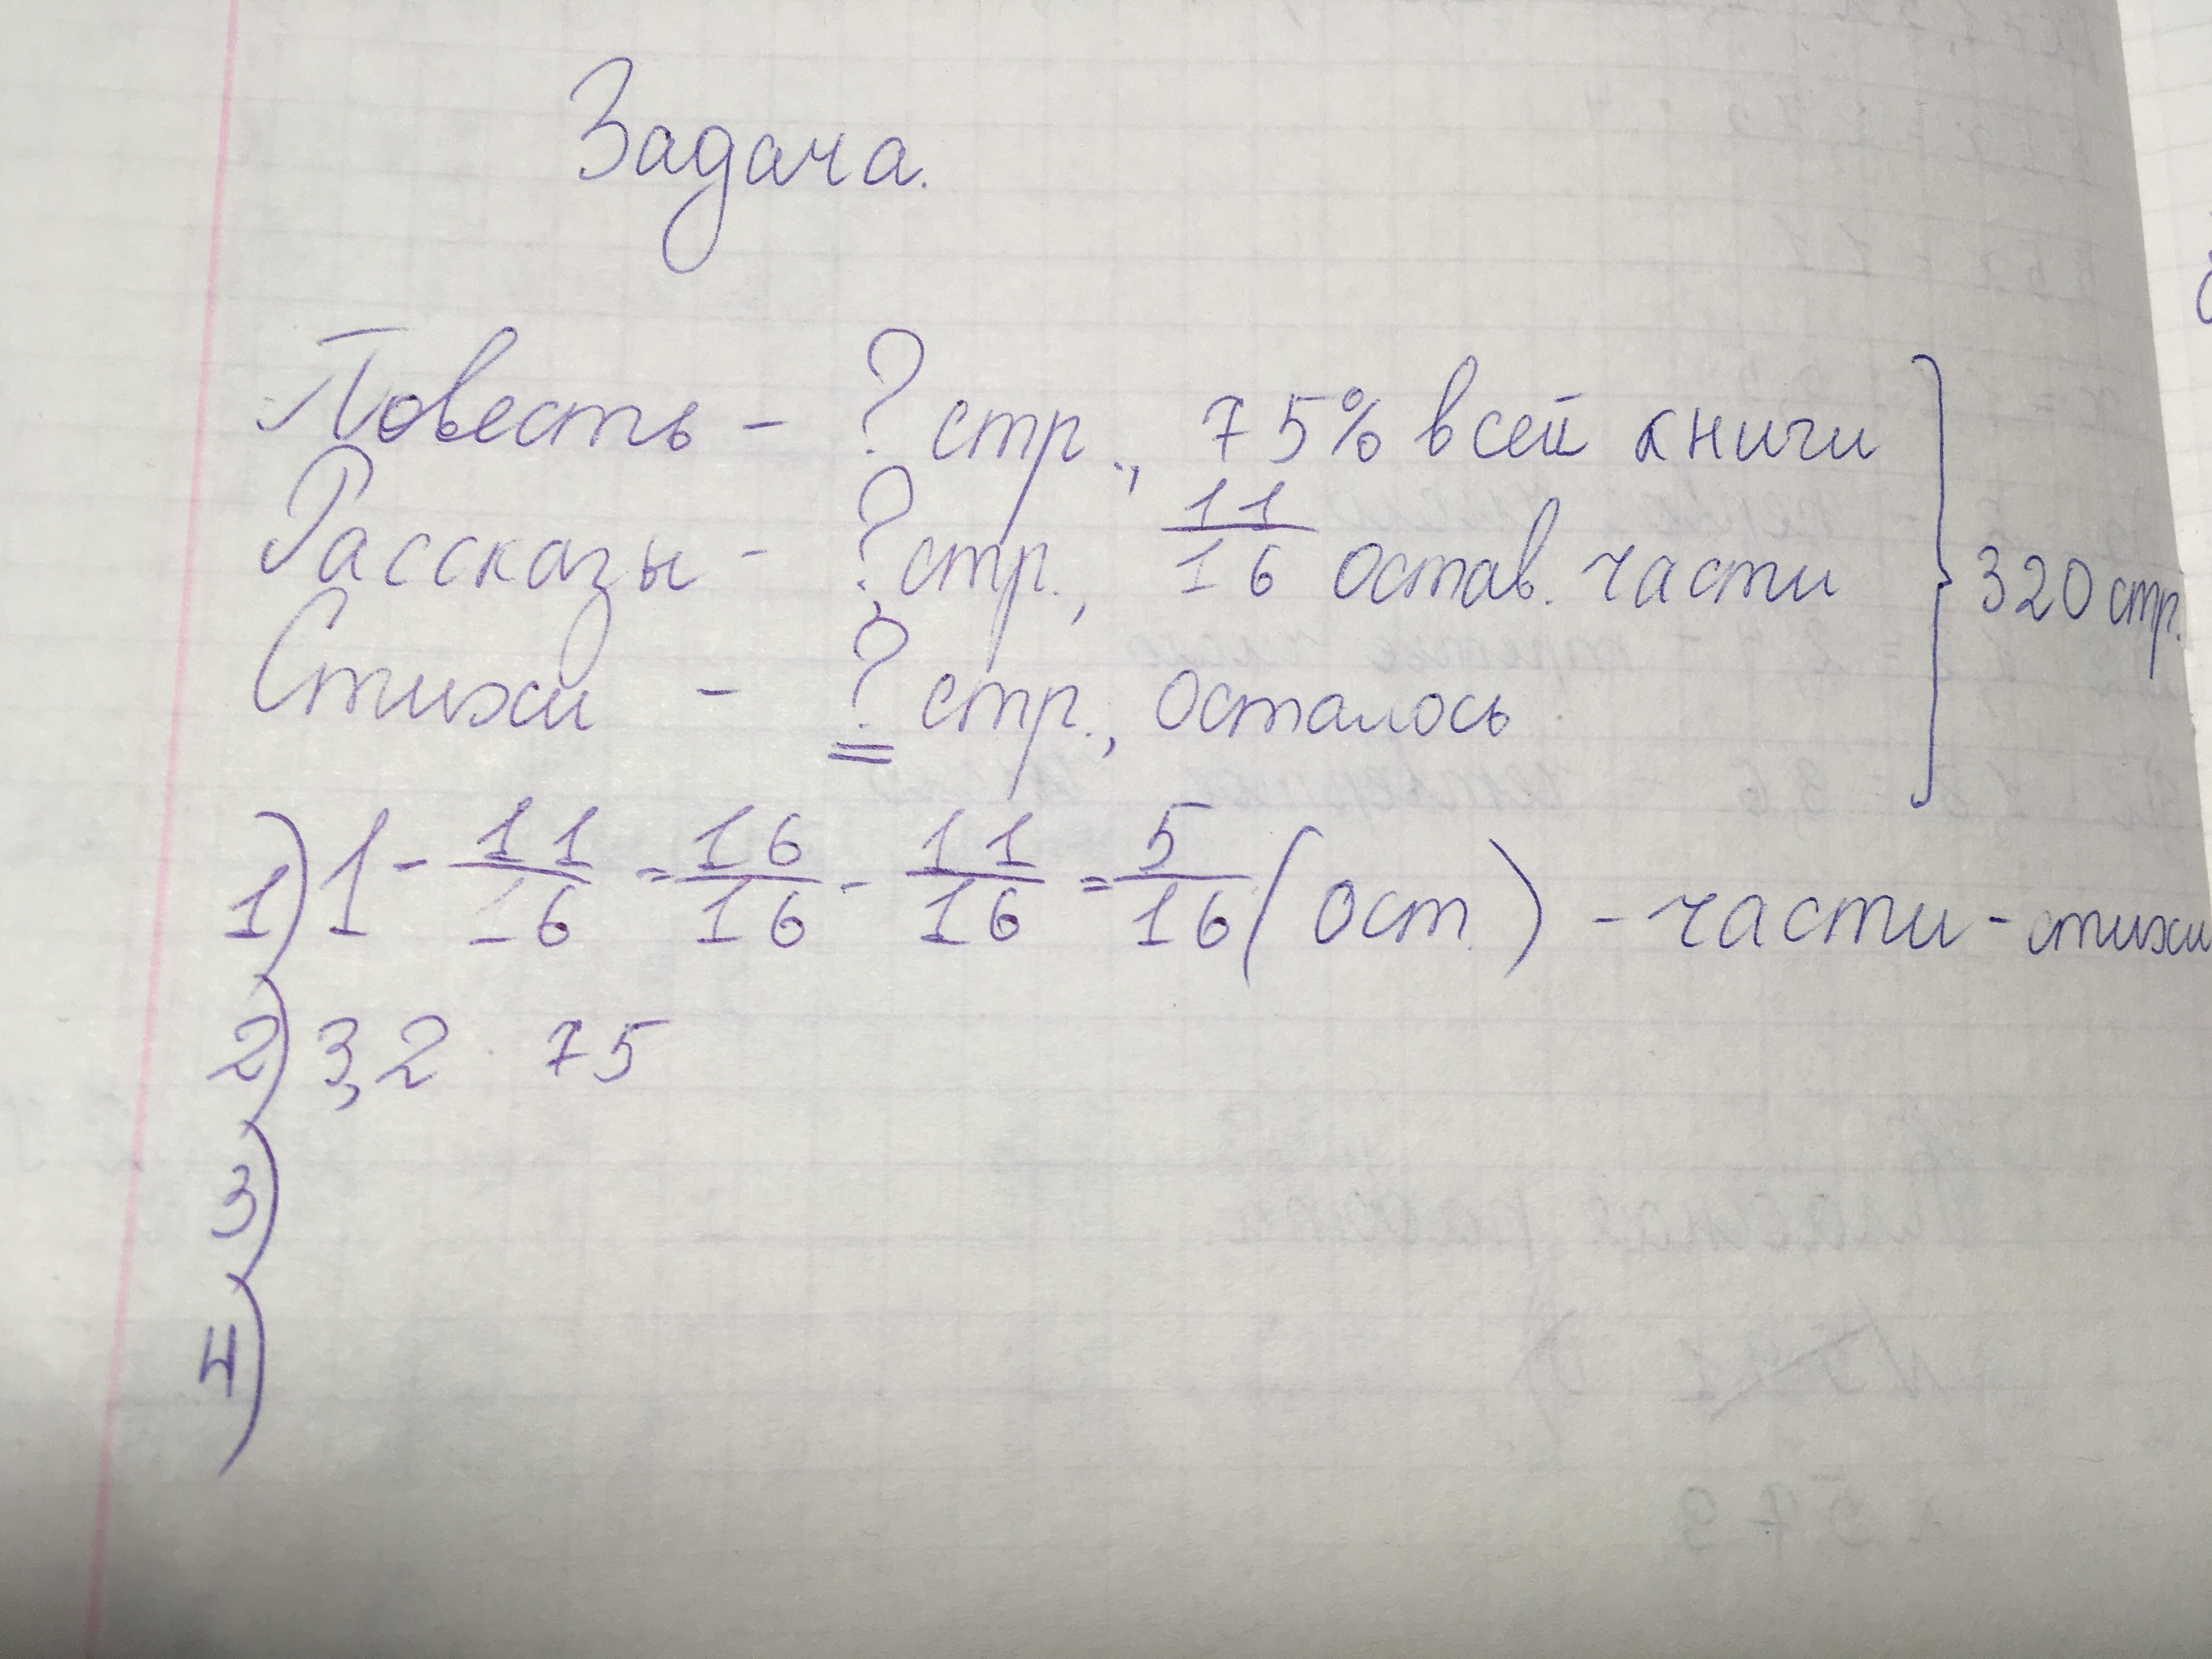 Задача.
Повесть - ? стр., 75% всей книги
Рассказы - ? стр., 11/16 остав. части
Стихи - ? стр., осталось
320 стр.
1) 1 - 11/16 = 16/16 - 11/16 = 5/16 (ост.) - части - стихи
2) 3,2 75
3)
4)